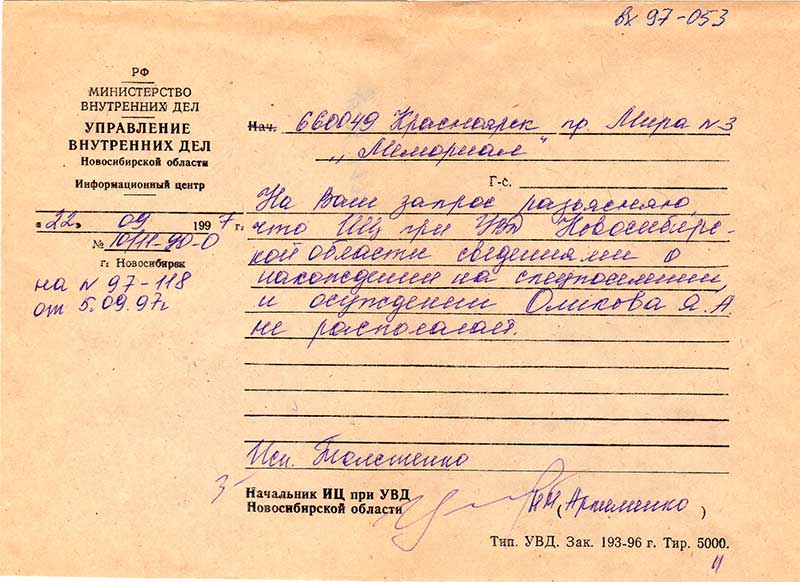 вх 97-053
РФ
МИНИСТЕРСТВО
ВНУТРЕННИХ ДЕЛ
УПРАВЛЕНИЕ
ВНУТРЕННИХ ДЕЛ
Новосибирской области
Информационный центр
«22» 09 1997 г.
№ 10/11-90-0
г. Новосибирск
на N 97-118
от 5.09.97г
Нач. 660049 Красноярск пр. Мира N 3
„Мемориал"
Г-с.
На Ваш запрос разъясняю,
что ИЦ при УВД Новосибирс-
кой области сведениями о
нахождении на спецпоселении,
и осуждении Оликова Я.А.
не располагает.
Исп. Толстенко
Начальник ИЦ при УВД
Новосибирской области
(Артеменко)
Тип. УВД. Зак. 193-96 г. Тир. 5000.